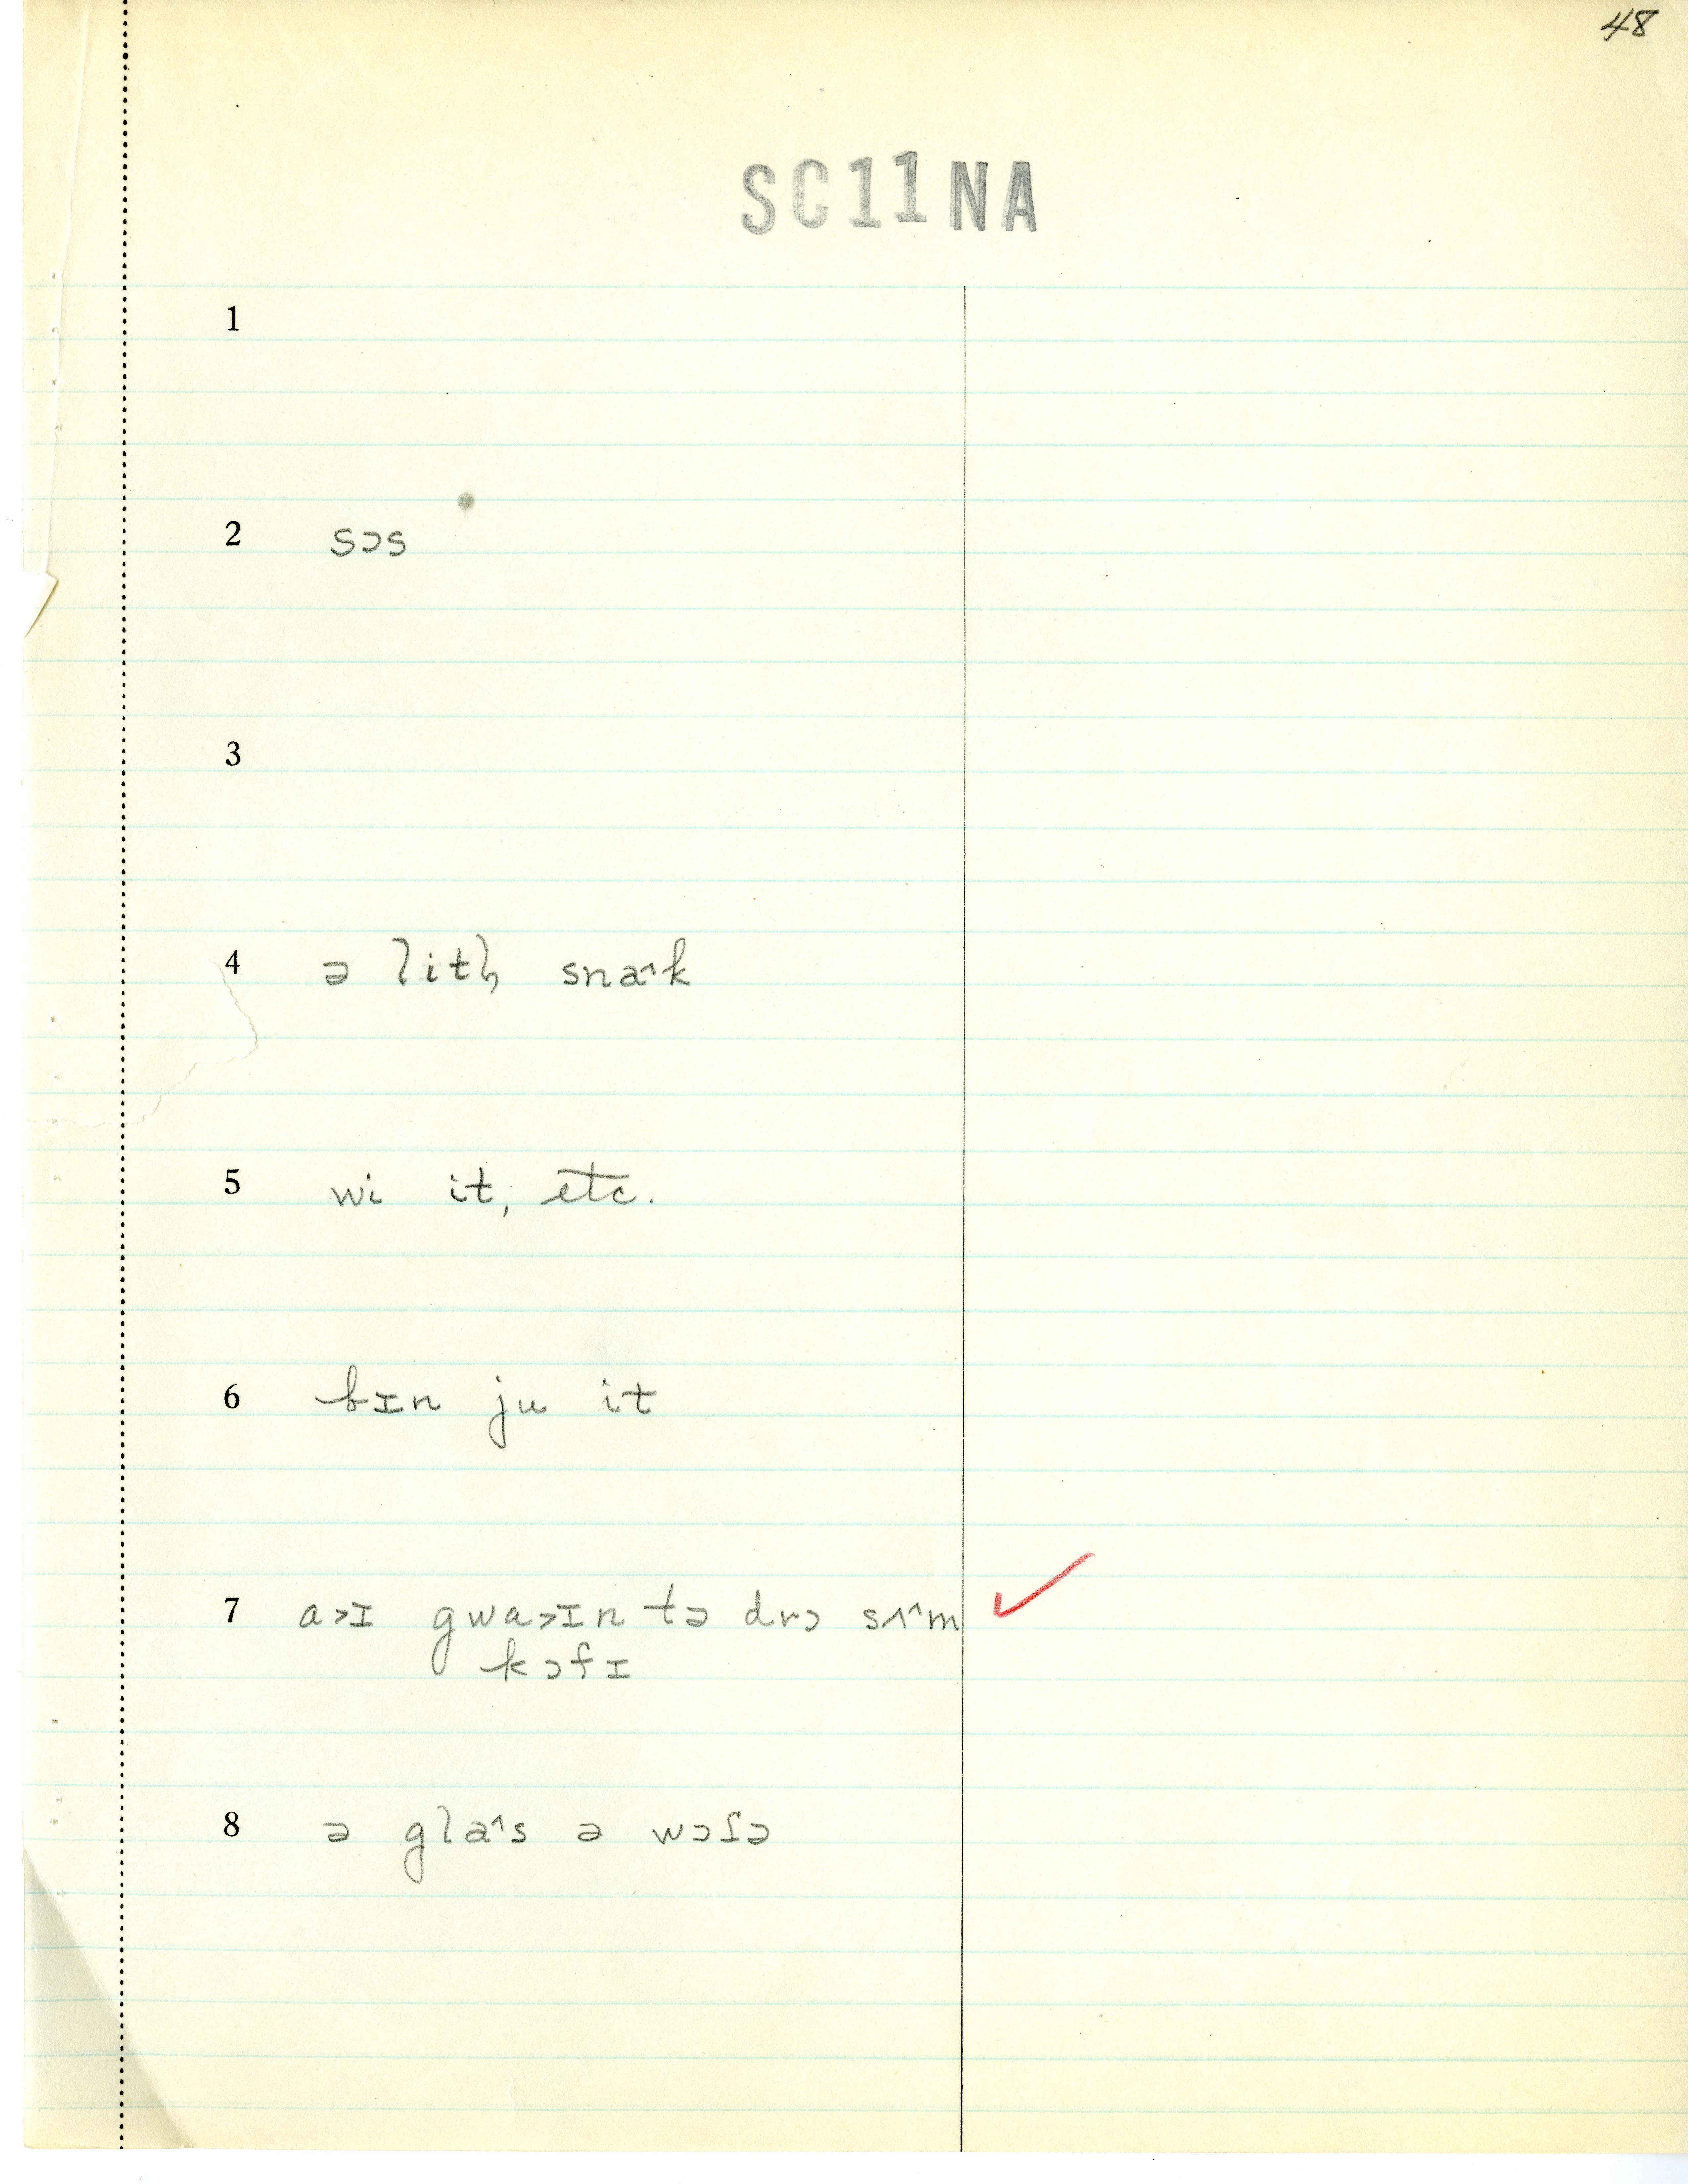 48
SC11NA
1
2 sɔs
3
4 ə litḷ snaˆk
5 wi it, etc.
6 bɪn ju it
7 a>ɪ gwa>ɪn tə drɔ sʌˆm ✓
kɔfɪ
8 ə glaˆs ə wɔɾə